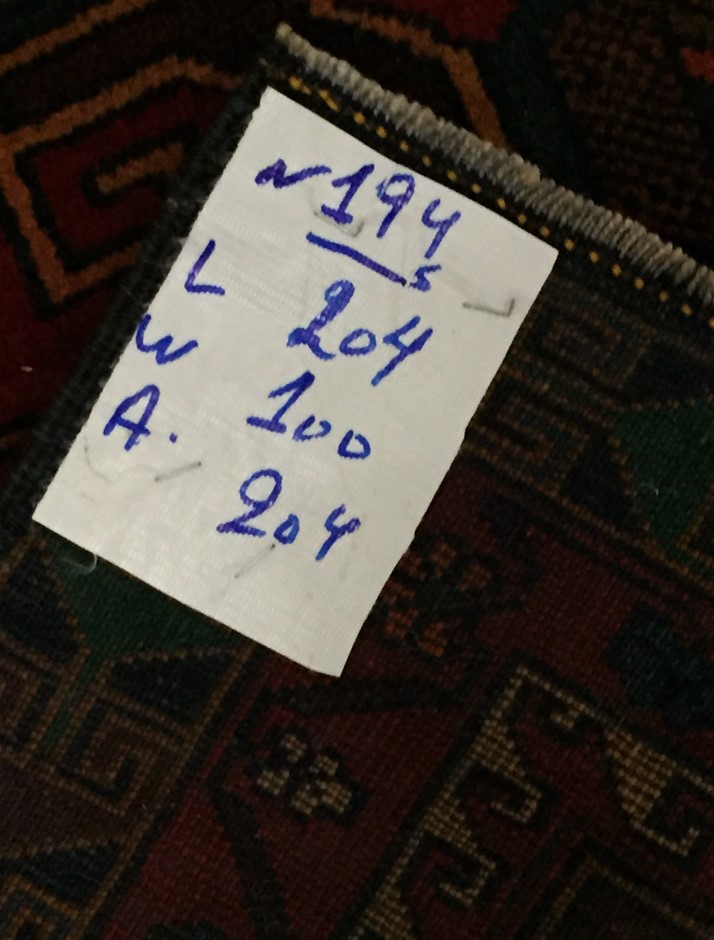 N 194
s
L 204
W 100
A. 204